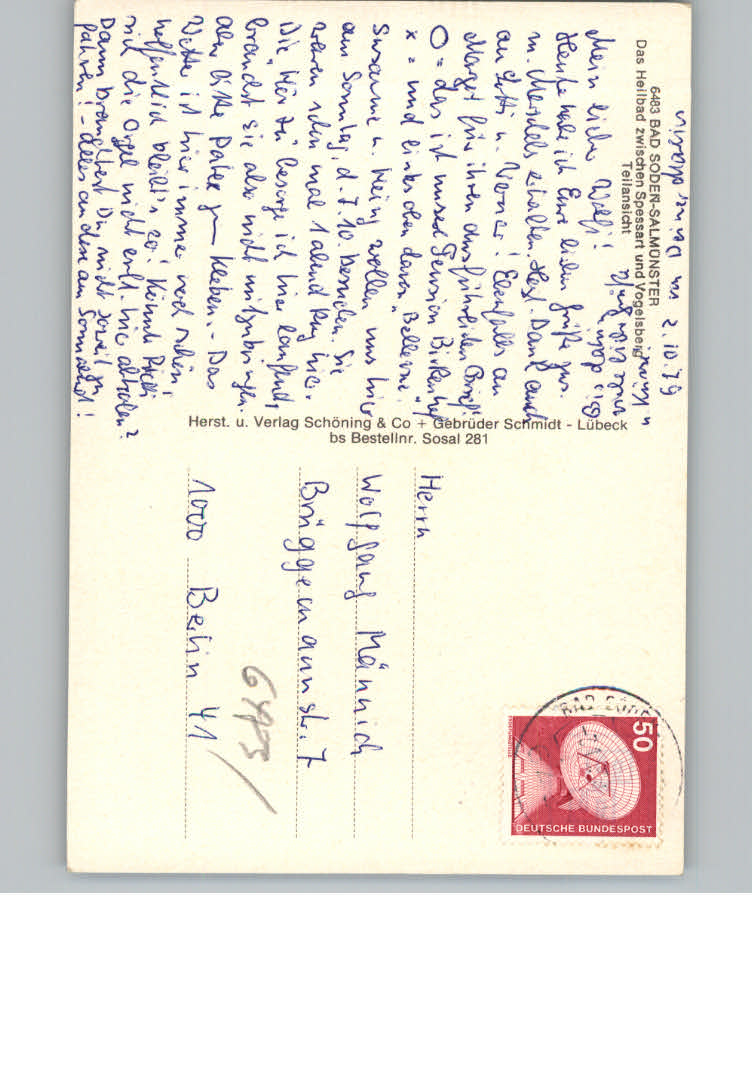 6483 BAD SODEN-SALMÜNSTER
Das Heilbad zwischen Spessart und Vogelsberg
Teilansicht
2.10.79
Mein lieber Wolf!
Heute habe ich Eure lieben Grüße zus.
m. erhalten. Herzl. Dank auch
an u. Werner! Ebenfalls an
Margot für ihren ausführlichen Brief!
O = das ist unsere Pension Birkenhof
x = und links oben davon "Bellevue".
Susanne u. Heinz wollen uns hier
am Sonntag, d. 7.10. besuchen. Sie
waren schon mal 1 Abend hier.
Die "Hör zu" besorge ich hier laufend,
brauchst sie also nicht mitzubringen.
Aber bitte Datex zum Kleben. - Das
Wetter ist hier immer noch schön!
hoffentlich bleibt's so! Könnte
mir die Orgel nicht evtl. hier abholen?
Dann brauchtest Du nicht soweit zu
fahren! - Alles andere am Sonnabend!
Herst. u. Verlag Schöning & Co + Gebrüder Schmidt - Lübeck
bs Bestellnr. Sosal 281
Herrn
Wolfgang Männich
Brüggemannstr. 7
1000 Berlin 41
6483/
BAD SODEN
50
DEUTSCHE BUNDESPOST